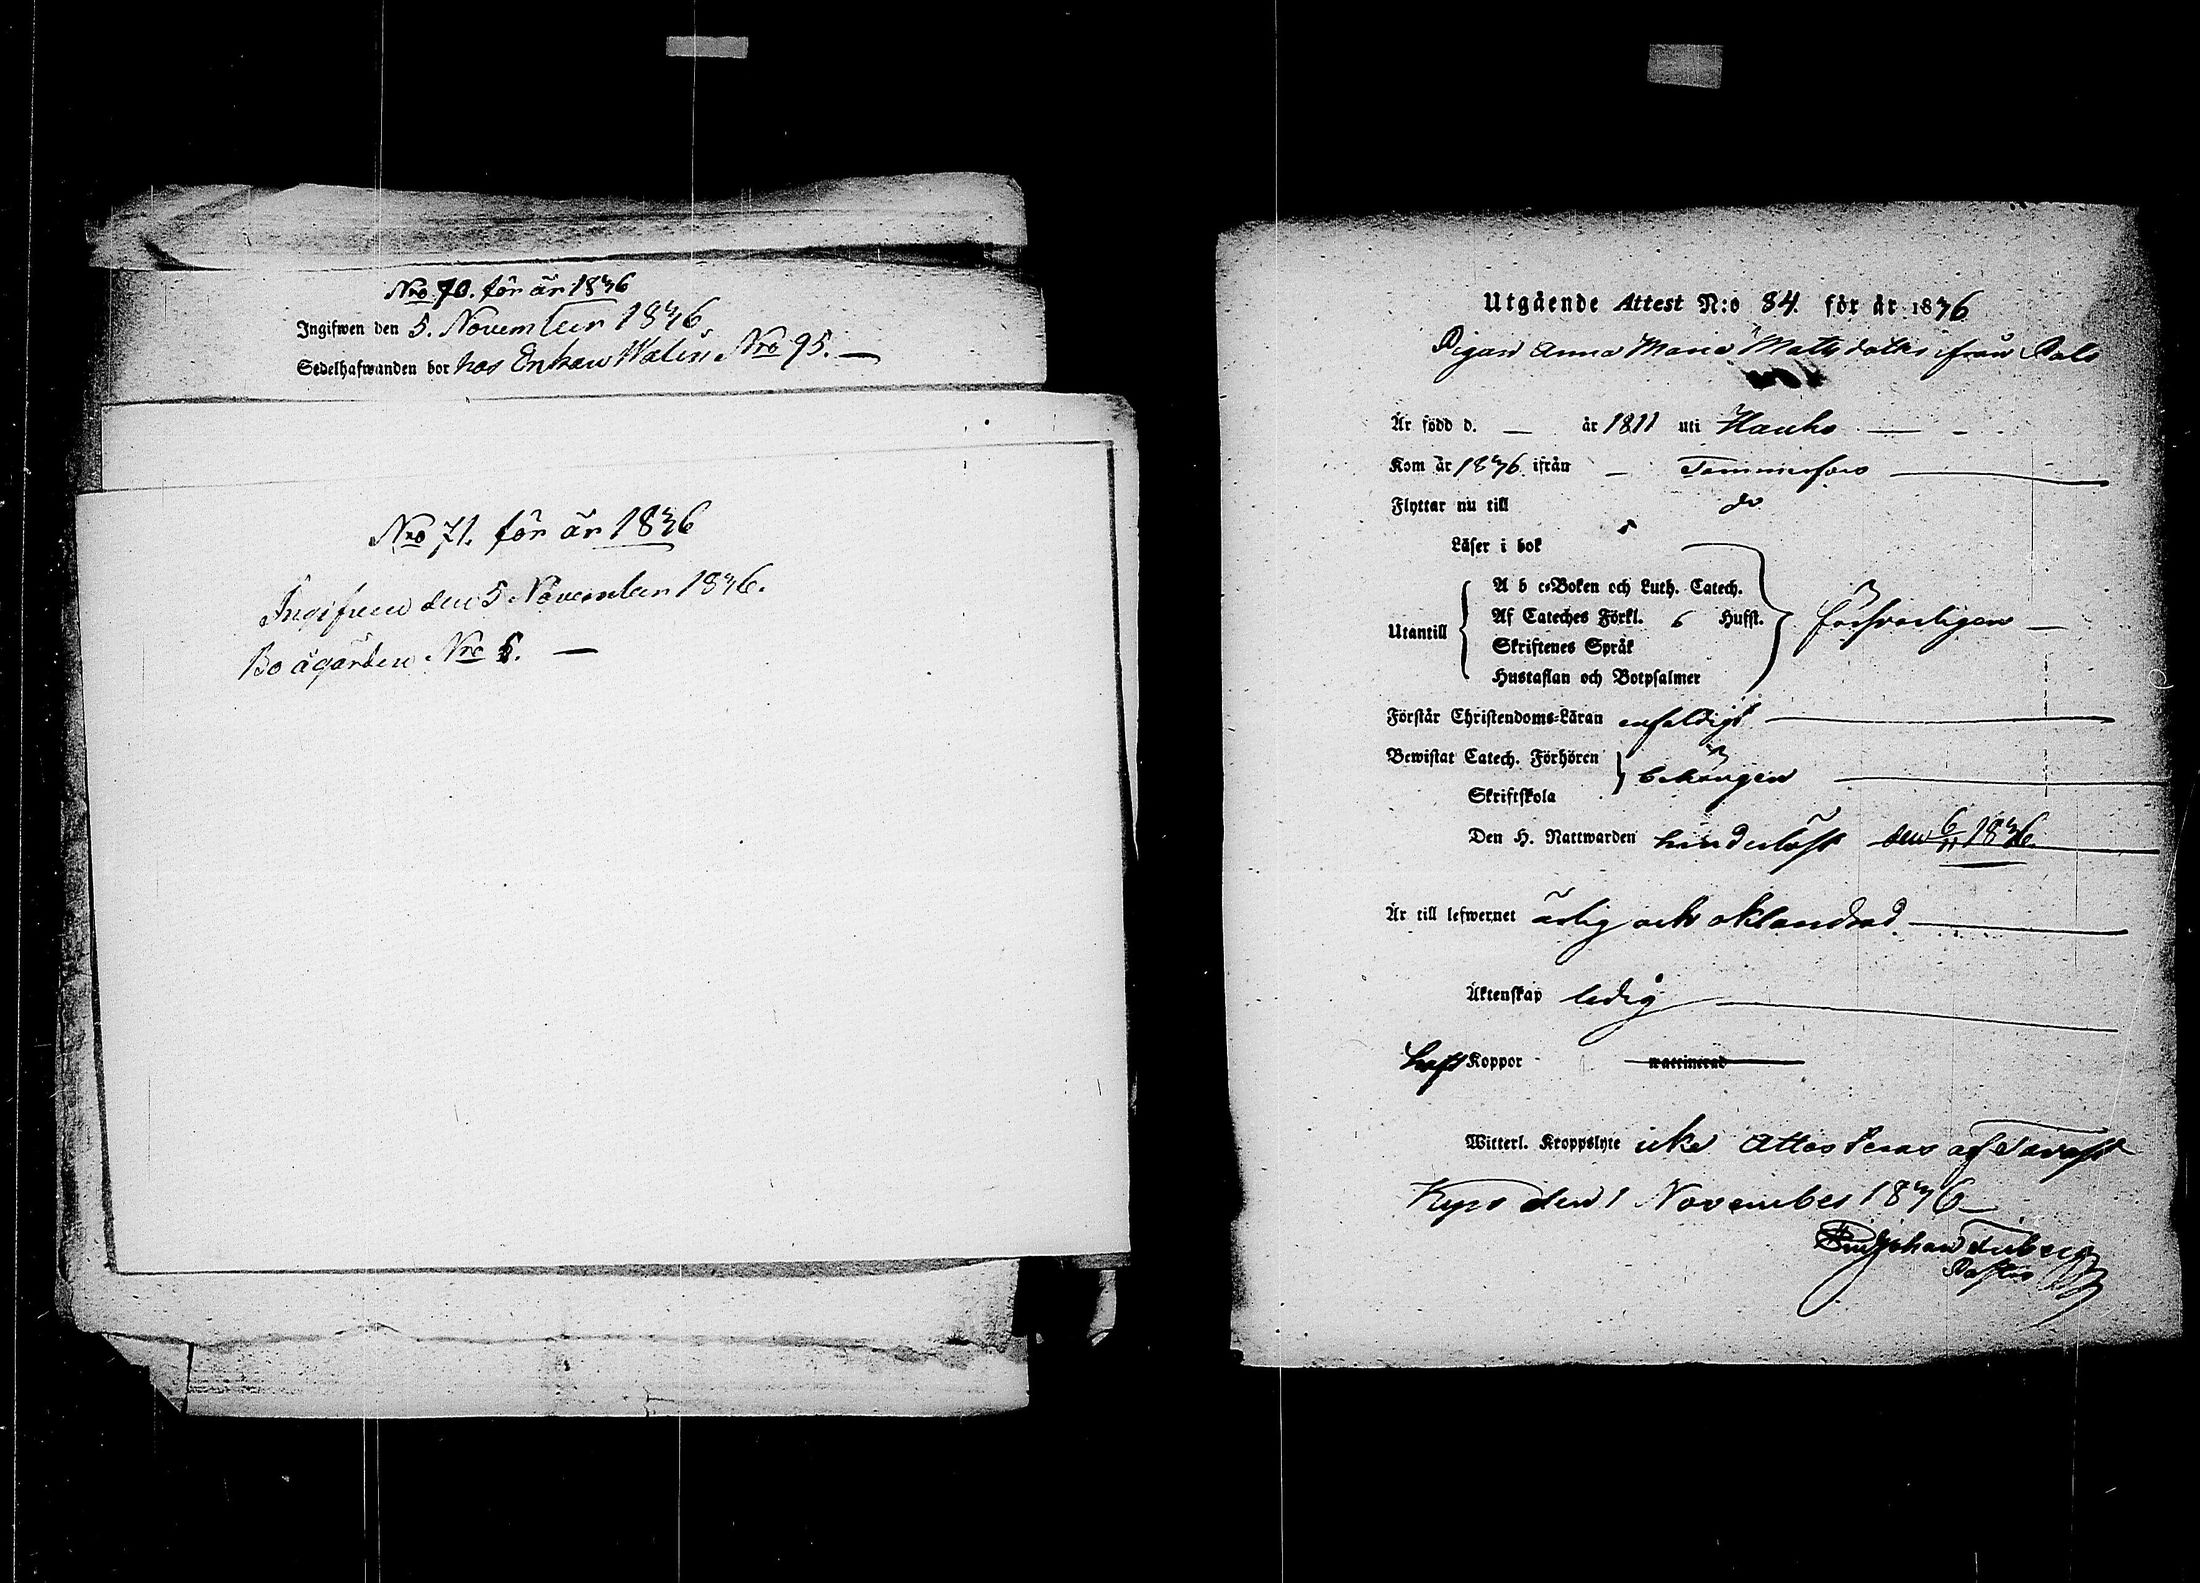 Nro 70. för år 1836
Ingifwen den 5. November 1836.
Sedelhafwanden bor hos Enkan Walin Nro 95. —
Nro 71. för år 1836
Ingifven den 5 November 1836.
Bo å gården Nro 5. —
Utgående Attest N:o 84. för år 1836
Pigan Anna Maria Matts dotter ifrån Palo
Är född d. — år 1811 uti Hauho — -
Kom år 1836 ifrån — Tammerfors
Flyttar nu till do
Läser i bok
A b c-Boken och Luth. Catech.
Utantill Af Cateches Förkl. 6 Hufst. försvarligen —
Skriftenes Språk
Hustaflan och Botpsalmer
Förstår Christendoms-Läran enfaldigt
Bewistat Catech. Förhören behörigen
Skriftskola
Den H. Nattwarden hinderlöst den 6/11 1836.
Är till lefwernet ärlig och oklandrad
Äktenskap ledig
haft Koppor waccinerad
Witterl. Kroppslyte icke Attesteras af Tavast
Kyro den 1 November 1836 —
Johan
Pastor